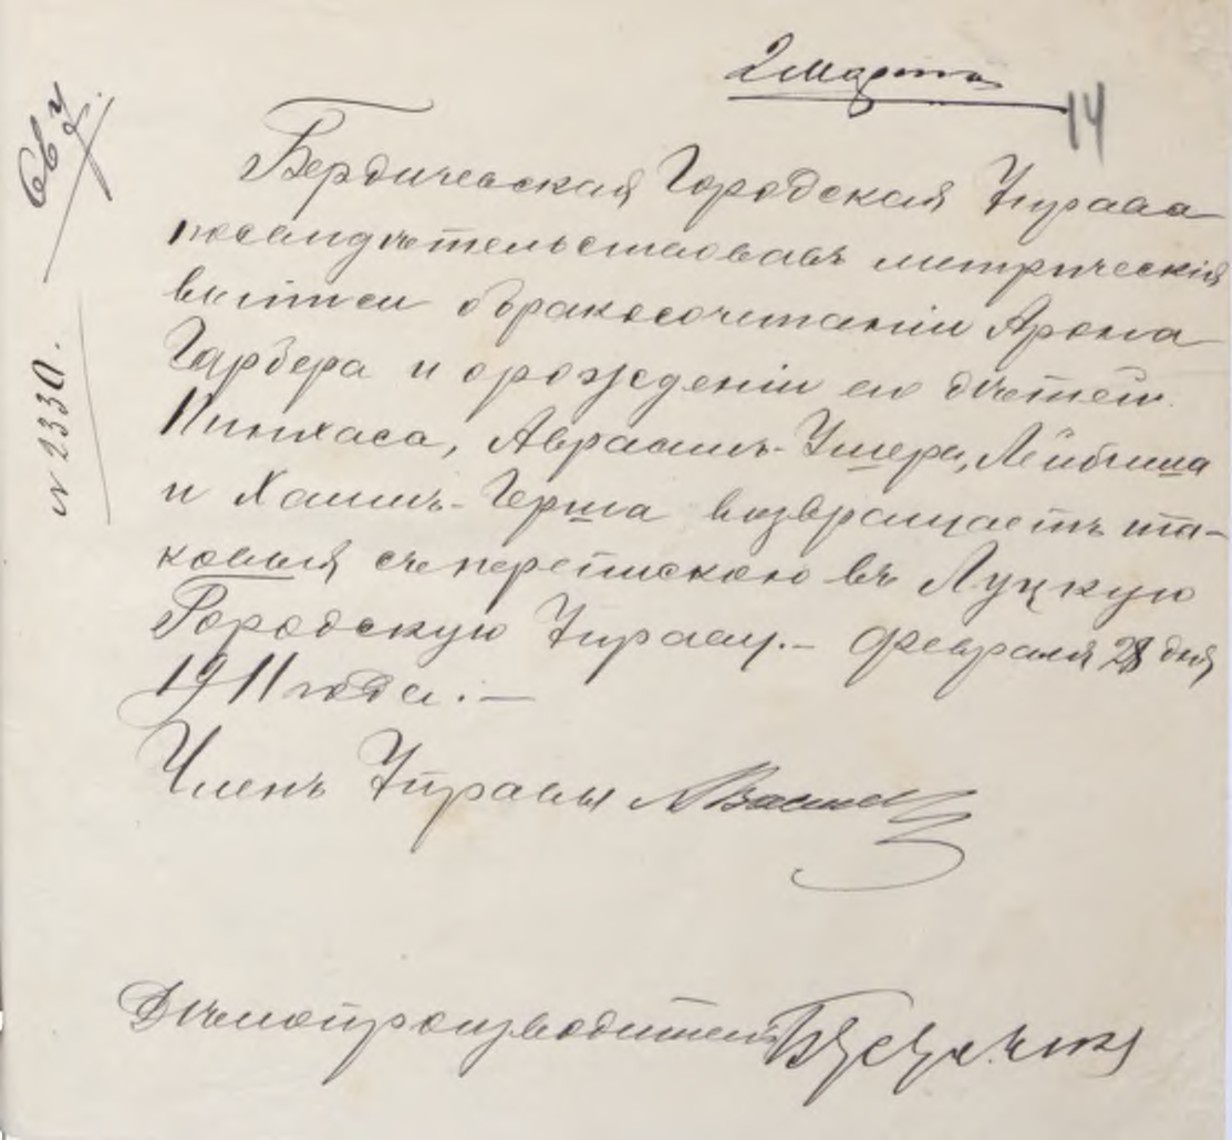 2 Марта
14
Бердичевская Городская Управа
позасвидѣтельствовавъ метрическія
выписи о бракосочетаніи Арона
Гарбера и о рожденіи его дѣтей
Пинхаса, Авраамъ-Ушера, Лейбиша
и Хаимъ-Герша возвращаетъ та-
ковыя съ перепискою въ Луцкую
Городскую Управу.- Февраля 28 дня
1911 года.-
Членъ Управы
Дѣлопроизводитель
№ 2330.